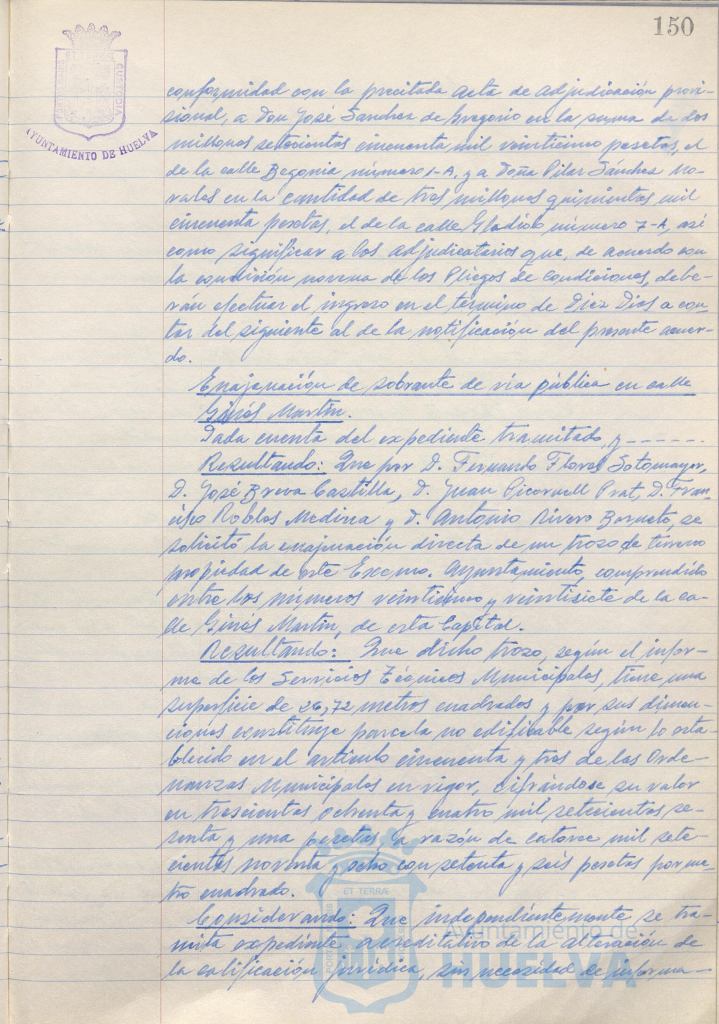 150
AYUNTAMIENTO DE HUELVA
conformidad con la precitada acta de adjudicación provi-
sional, a Don José Sánchez de Gregorio en la suma de dos
millones setecientas cincuenta mil veinticinco pesetas, el
de la calle Begonia número 1-A, y a Doña Pilar Sánchez No-
vales en la cantidad de tres millones quinientas mil
cincuenta pesetas, el de la calle Gladiolo número 7-A, así
como significar a los adjudicatarios que, de acuerdo con
la condición novena de los Pliegos de Condiciones, debe-
rán efectuar el ingreso en el término de Diez Días a con-
tar del siguiente al de la notificación del presente acuer-
do.
Enajenación de sobrante de vía pública en calle
Ginés Martín.
Dada cuenta del expediente tramitado, y ------
Resultando: Que por D. Fernando Flores Sotomayor,
D. José Breva Castilla, D. Juan Picornell Prat, D. Fran-
cisco Robles Medina y D. Antonio Rivero Borneto, se
solicitó la enajenación directa de un trozo de terreno
propiedad de este Excmo. Ayuntamiento, comprendido
entre los números veinticinco y veintisiete de la ca-
lle Ginés Martín, de esta Capital.
Resultando: Que dicho trozo, según el infor-
me de los Servicios Técnicos Municipales, tiene una
superficie de 26,72 metros cuadrados y por sus dimen-
siones constituye parcela no edificable según lo esta-
blecido en el artículo cincuenta y tres de las Orde-
nanzas Municipales en vigor, cifrándose su valor
en trescientas ochenta y cuatro mil setecientas se-
senta y una pesetas a razón de catorce mil sete-
cientas noventa y ocho con setenta y seis pesetas por me-
tro cuadrado.
Considerando: Que independientemente se tra-
mita expediente acreditativo de la alteración de
la calificación jurídica, sin necesidad de informa-
ET TERRAE
Ayuntamiento de
HUELVA